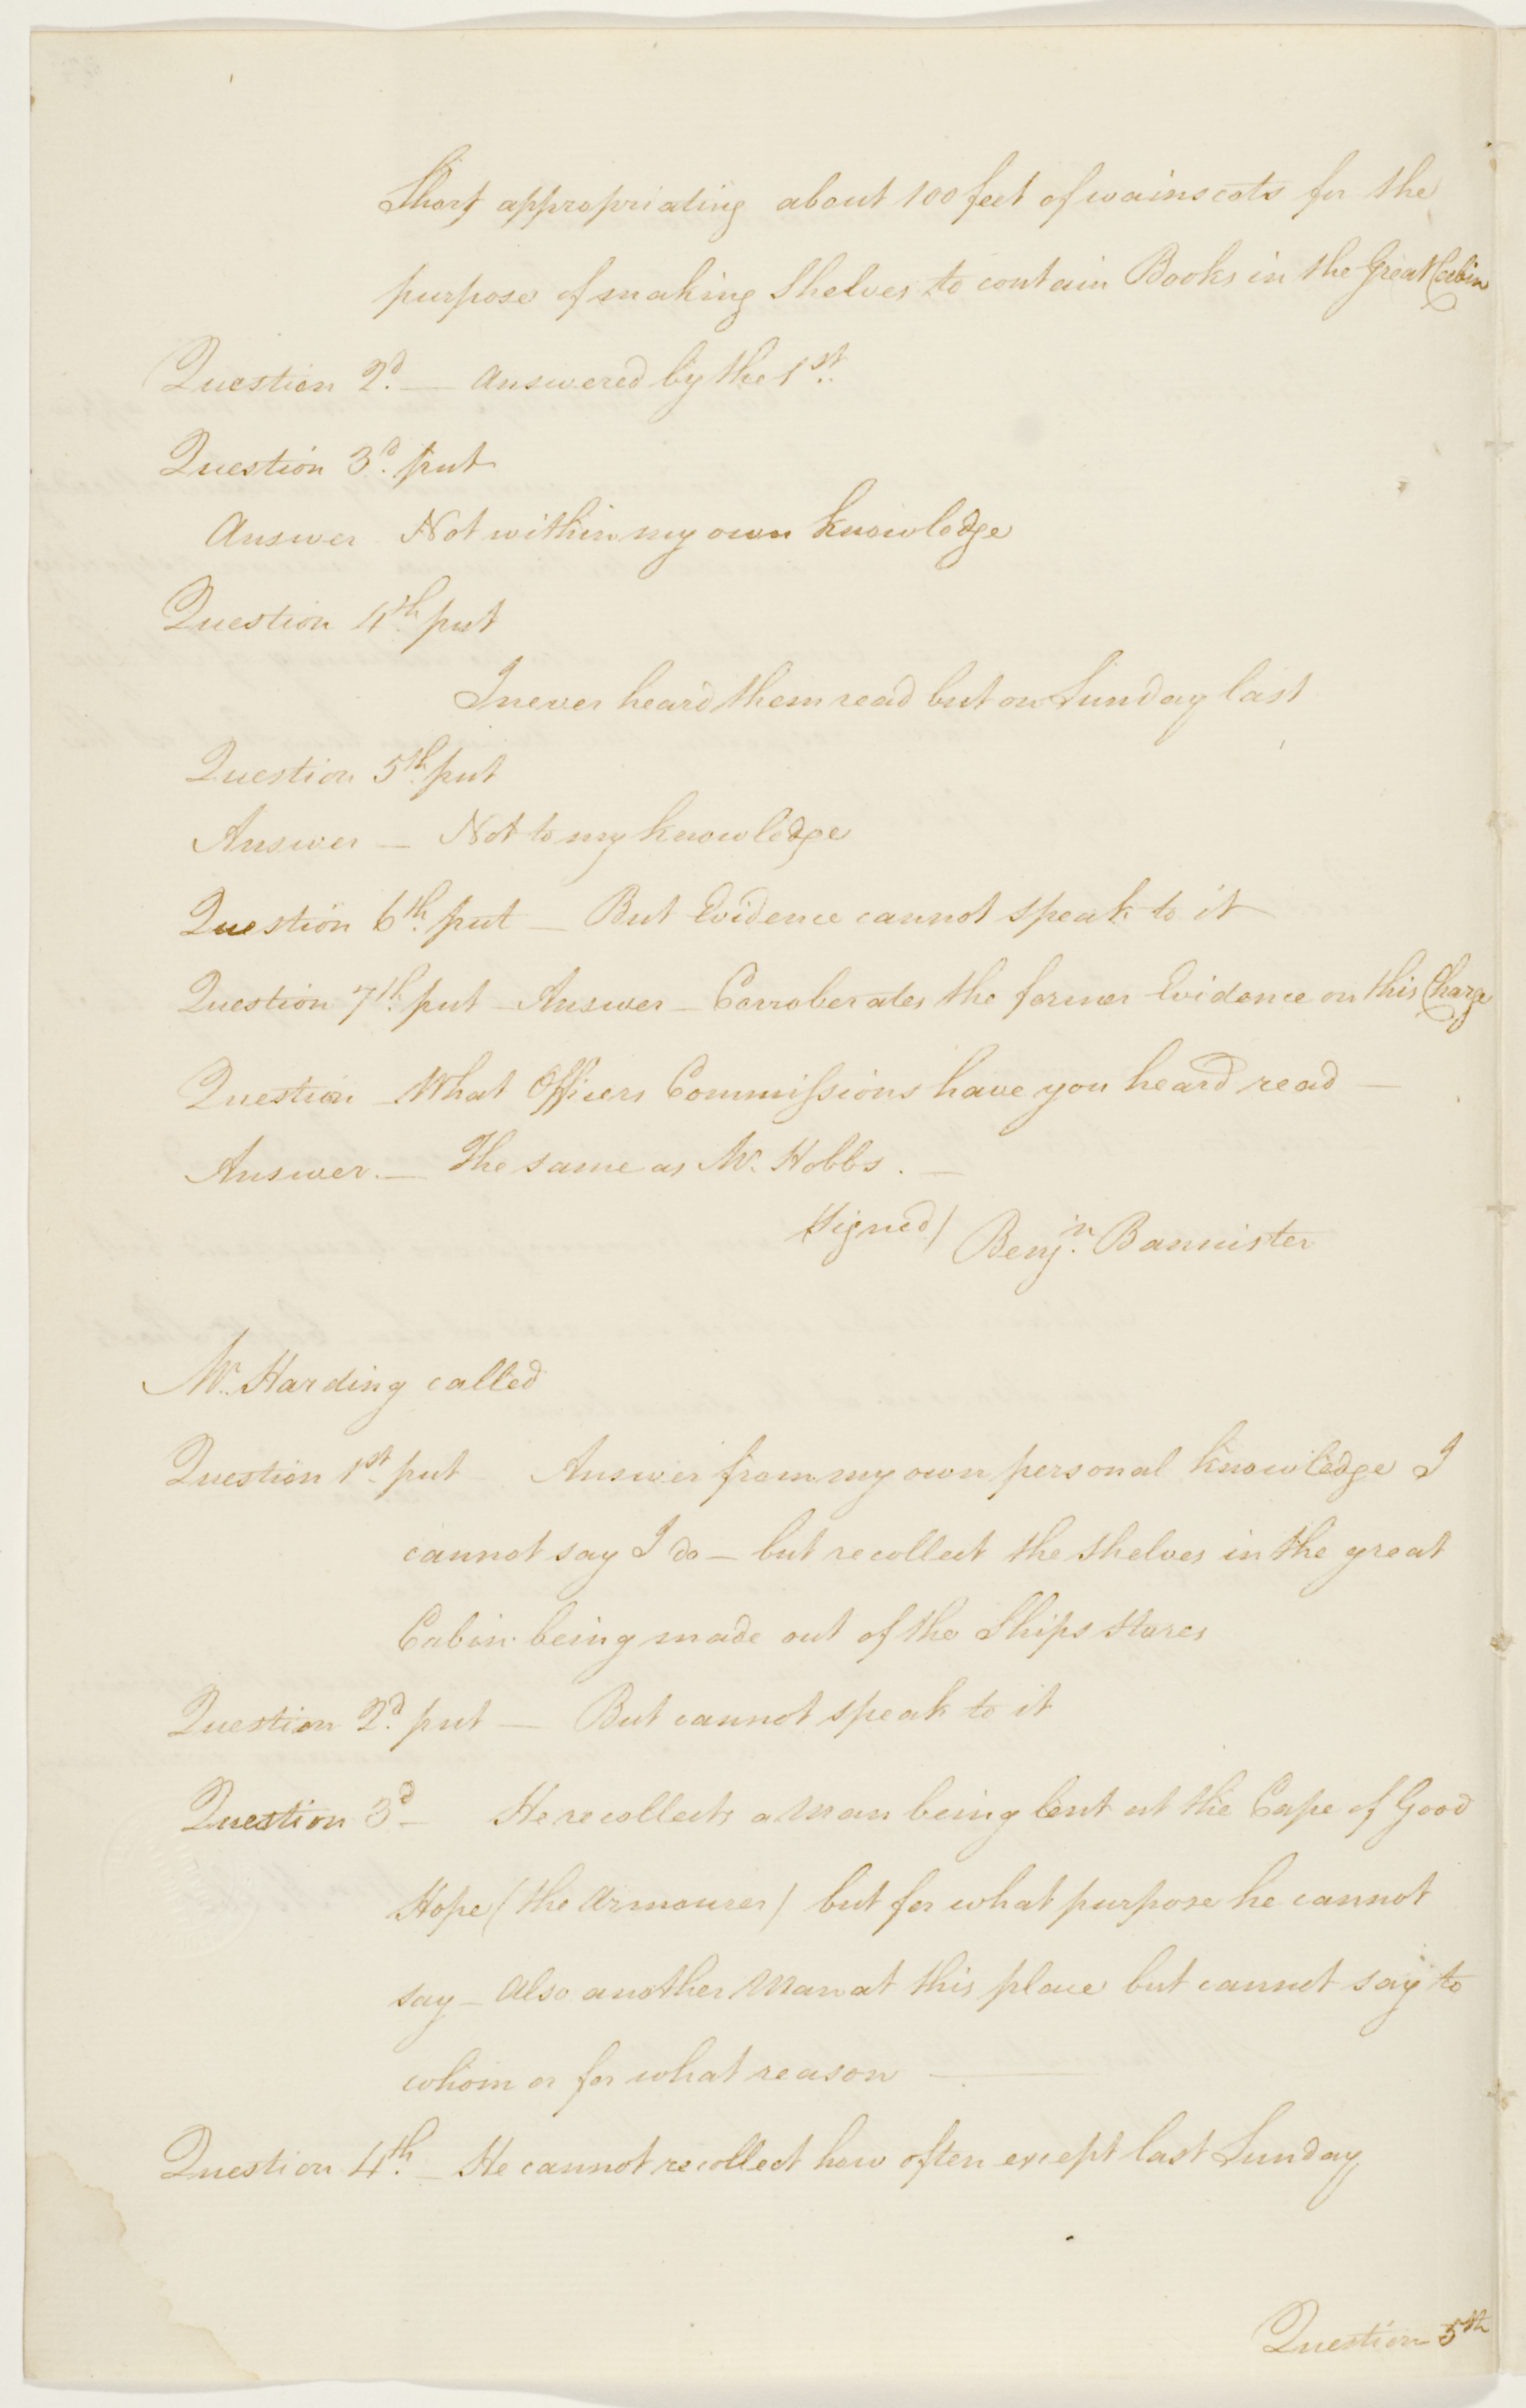 Short appropriating about 100 feet of wainscots for the
purpose of making Shelves to contain Books in the Great Cabin
Question 2d. — answered by the 1st.
Question 3d. put
Answer Not within my own knowledge
Question 4th. put
I never heard them read but on Sunday last
Question 5th. put
Answer — Not to my knowledge
Question 6th. put — But Evidence cannot speak to it
Question 7th. put — Answer — Corroberates the former Evidence on this Charge
Question — What Officers Commissions have you heard read —
Answer. — The same as Mr. Hobbs. —
Signed/ Benjn. Bannister
Mr. Harding called
Question 1st. put Answer from my own personal knowledge I
cannot say I do — but recollect the shelves in the great
Cabin being made out of the Ships stores
Question 2d. put — But cannot speak to it
Question 3d — He recollects a Man being lent at the Cape of Good
Hope (the Armourer) but for what purpose he cannot
say — Also another Man at this place but cannot say to
whom or for what reason —
Question 4th. — He cannot recollect how often except last Sunday
Question 5th